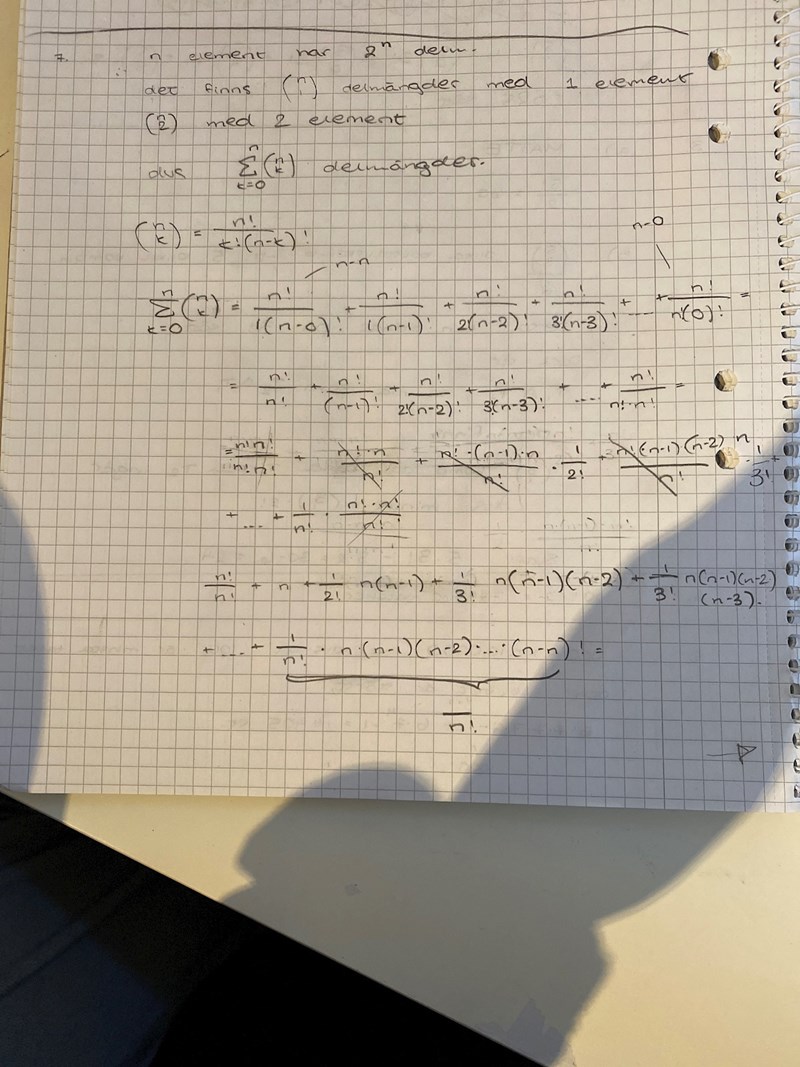 7. n element har 2^n delm.
∴ det finns (n 1) delmängder med 1 element
(n 2) med 2 element
dvs Σ_{k=0}^{n} (n k) delmängder.
n-0
(n k) = n!/k!(n-k)!
n-n
Σ_{k=0}^{n} (n k) = n!/1(n-0)! + n!/1(n-1)! + n!/2(n-2)! + n!/3!(n-3)! + .... + n!/n!(0)! =
= n!/n! + n!/(n-1)! + n!/2!(n-2)! + n!/3!(n-3)! + .... + n!/n!·n! =
= n!n!/n!n! + n!·n/n! + n!·(n-1)·n/n! · 1/2! + n!(n-1)(n-2) n/n! · 1/3! +
+ ... + 1/n! · n!·n!/n!
n!/n! + n + 1/2! n(n-1) + 1/3! n(n-1)(n-2) + 1/3! n(n-1)(n-2)
(n-3).
+ ... + 1/n! · n·(n-1)(n-2)·...·(n-n)! =
n!